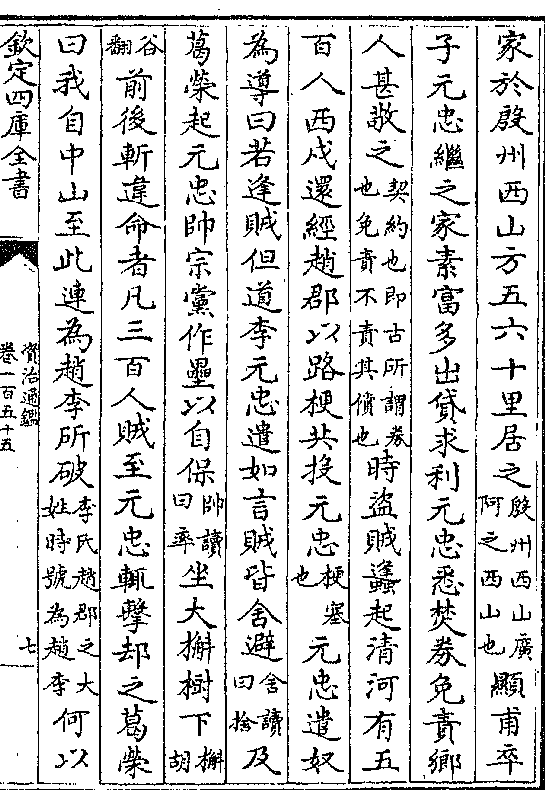 家於殷州西山方五六十里居之殷州西山廣阿之西山也顯甫卒
子元忠繼之家素富多出貸求利元忠悉焚券免責鄉
人甚敬之契約也即古所謂券也免責不責其償也時盜賊蠭起清河有五
百人西戍還經趙郡以路梗共投元忠梗塞也元忠遣奴
為導曰若逢賊但道李元忠遣如言賊皆舍避舍讀曰捨及
葛榮起元忠帥宗黨作壘以自保帥讀曰率坐大槲樹下槲胡
谷翻前後斬違命者凡三百人賊至元忠輒擊却之葛榮
曰我自中山至此連為趙李所破李氏趙郡之大姓時號為趙李何以
欽定四庫全書
資治通鑑
卷一百五十五
七